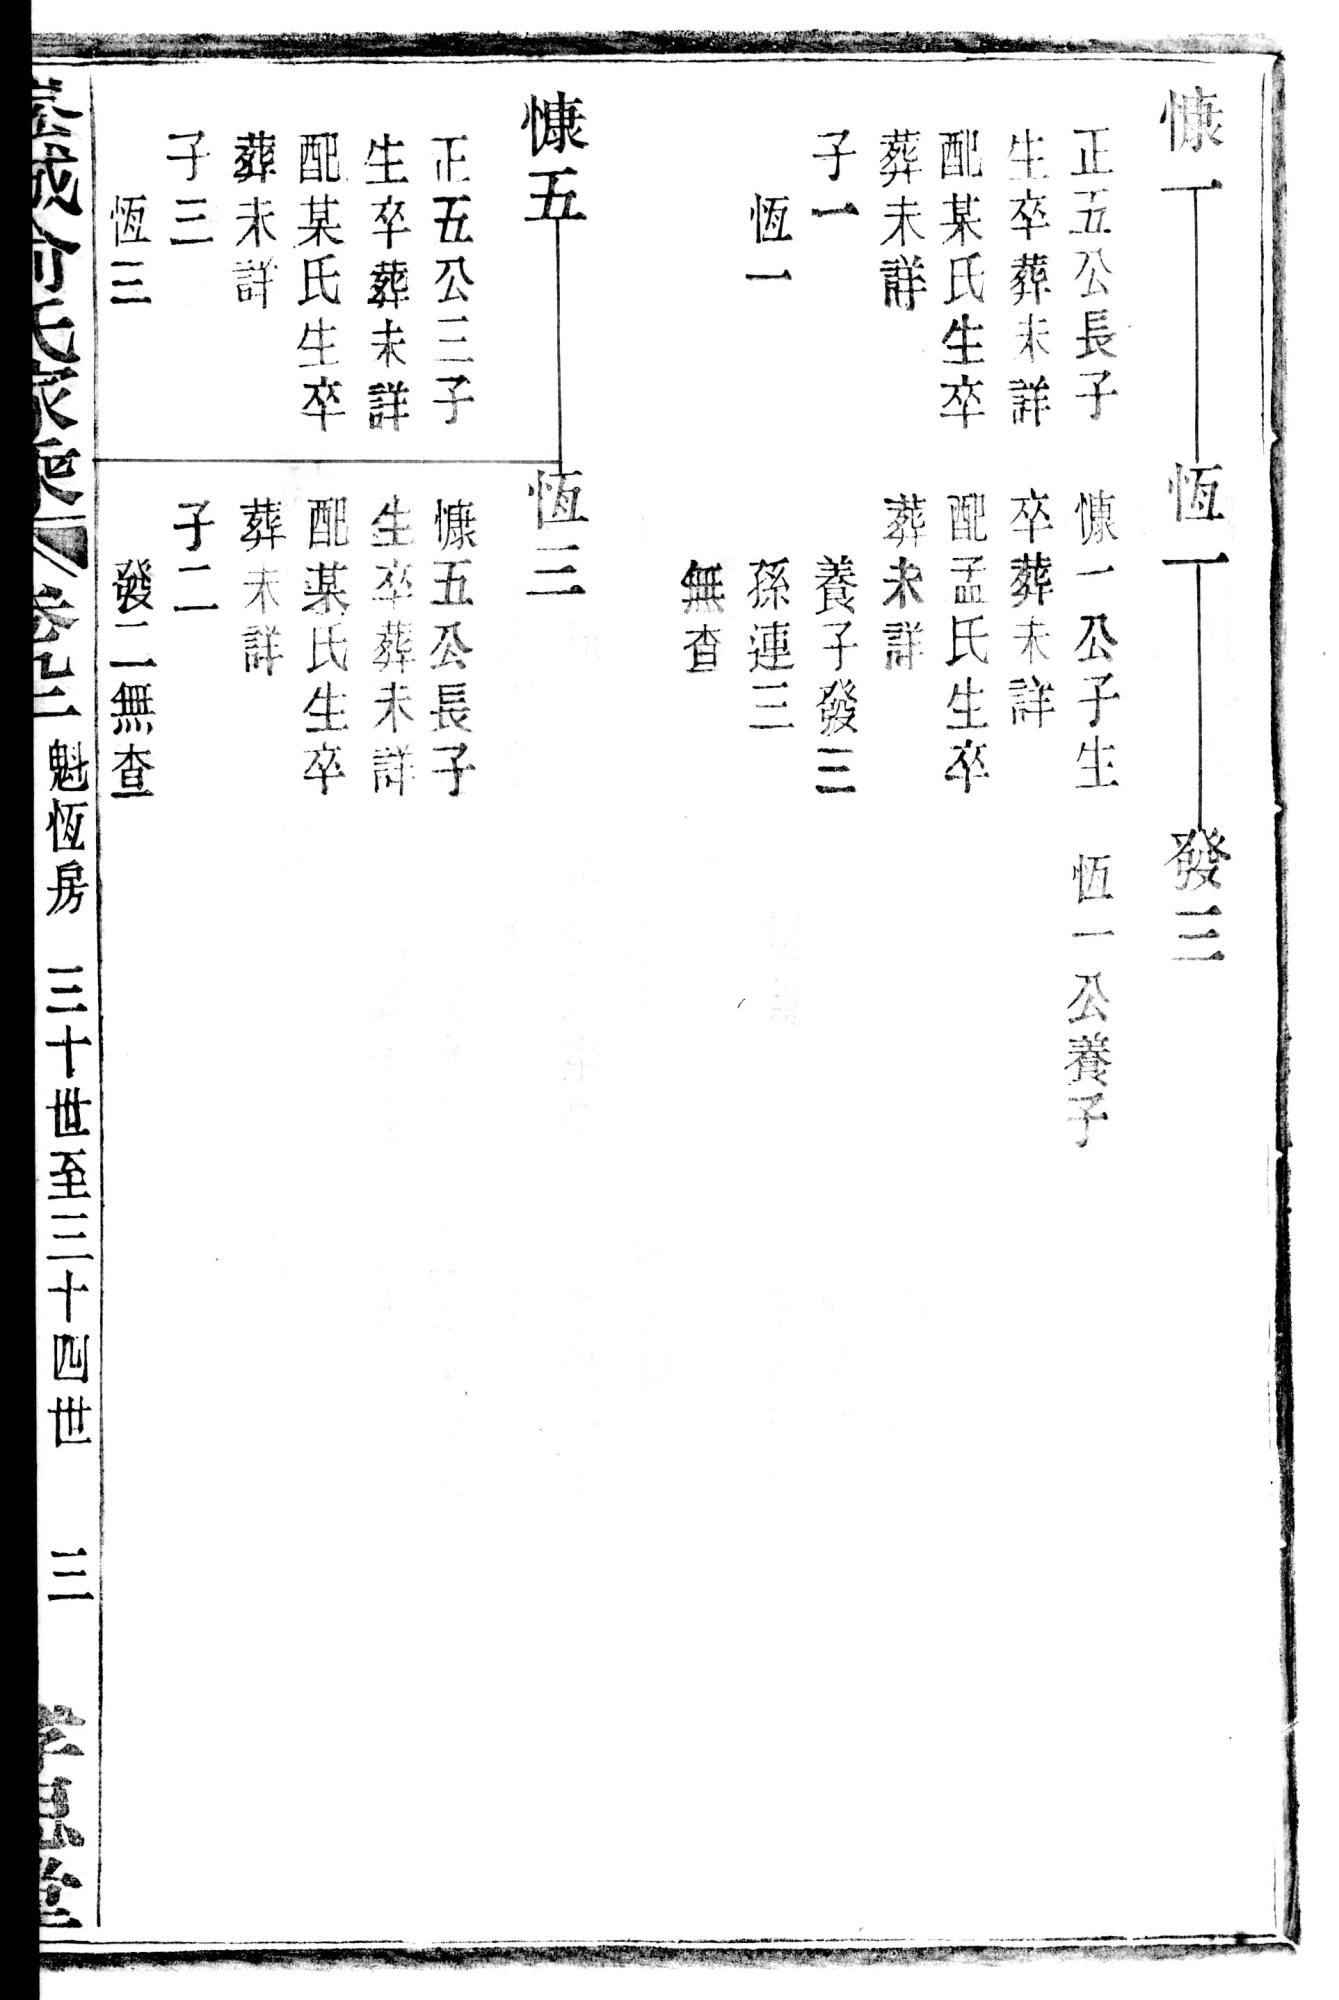 慷一
正五公長子
生卒葬未詳
配某氏生卒
葬未詳
子一
恆一
恆一
慷一公子生
卒葬未詳
配孟氏生卒
葬未詳
養子發三
孫連三
無查
發三
恆一公養子
慷五
正五公三子
生卒葬未詳
配某氏生卒
葬未詳
子三
恆三
恆三
慷五公長子
生卒葬未詳
配某氏生卒
葬未詳
子二
發二無查
氏家乘
魁恆房
三十世至三十四世
三
孝思堂